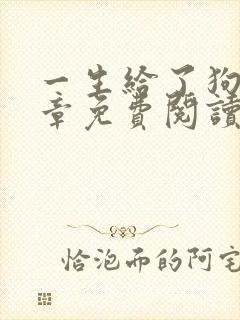 一生给了狗
章免费閱讀
恰泡而的阿宅